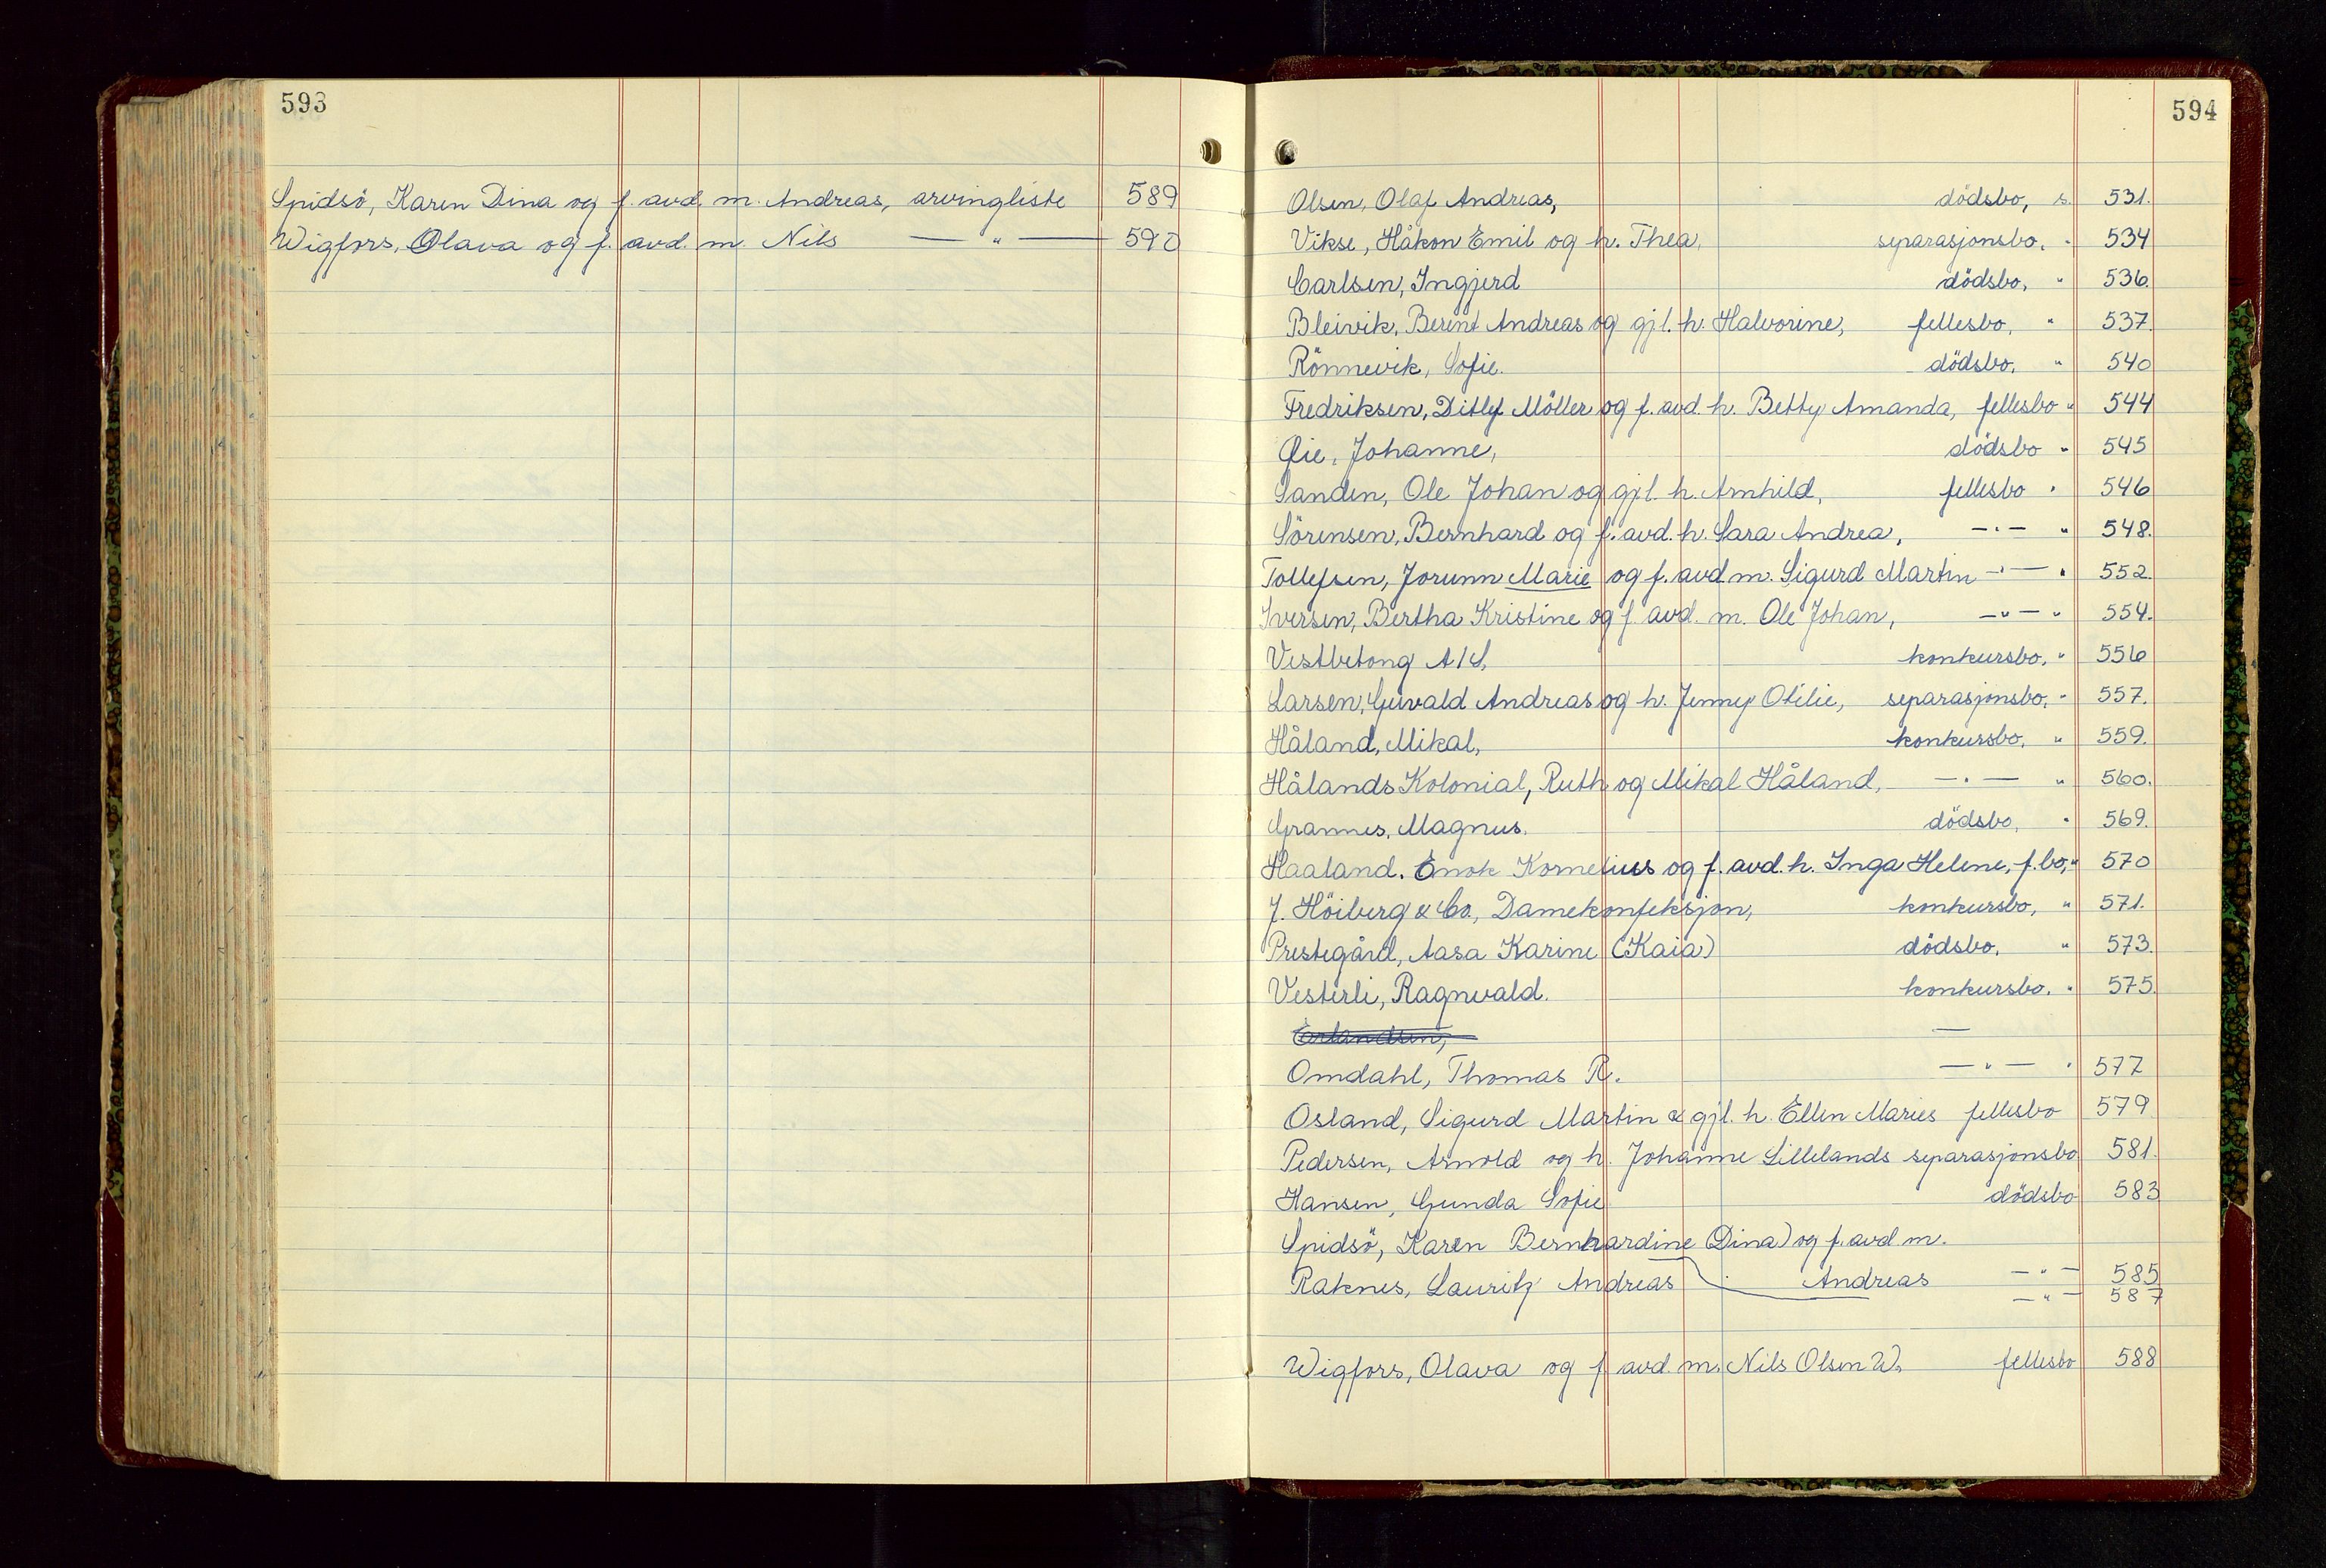 593
Spidsö, Karen Dina og f. avd. m. Andreas, arvingliste 589
Wigfors, Olava og f. avd. m. Nils — " — 590
594
Olsen, Olaf Andreas, dödsbo, s. 531.
Vikse, Håkon Emil og h. Thea, separasjonsbo, " 534
Carlsen, Ingjerd dödsbo, " 536.
Bleivik, Berent Andreas og gjl. h. Halvorine, fellesbo, " 537.
Rönnevik, Sofie. dödsbo, " 540
Fredriksen, Ditlef Möller og f. avd. h. Betty Amanda, fellesbo " 544
Øie, Johanne, dödsbo " 545
Sanden, Ole Johan og gjl. h. Arnhild, fellesbo " 546
Sörensen, Bernhard og f. avd. h. Sara Andrea, — " — " 548.
Tollefsen, Jorunn Marie og f. avd m. Sigurd Martin — " — " 552.
Iversen, Bertha Kristine og f. avd. m. Ole Johan, — " — " 554.
Vestbetong A/S, konkursbo, " 556
Larsen, Guvald Andreas og h. Jenny Otilie, separasjonsbo, " 557.
Håland, Mikal, konkursbo, " 559.
Hålands Kolonial, Ruth og Mikal Håland, — " — " 560.
Grannes, Magnus. dödsbo, " 569.
Haaland. Enok Kornelius og f. avd. h. Inga Helene, f.bo, " 570
J. Höiberg & Co., Damekonfeksjon, konkursbo, " 571.
Prestegård, Aasa Karine (Kaia) dödsbo, " 573.
Vesterli, Ragnvald. konkursbo. " 575.
Erlandsen, —
Omdahl, Thomas R. — " — " 577
Osland, Sigurd Martin & gjl. h. Ellen Maries fellesbo 579
Pedersen, Arnold og h. Johanne Lillelands separasjonsbo 581.
Hansen, Gunda Sofie dödsbo 583
Spidsö, Karen Bernhardine (Dina) og f. avd m.
Andreas — " — 585
Raknes, Lauritz Andreas — " — 587
Wigfors, Olava og f. avd. m. Nils Olsen W. fellesbo 588